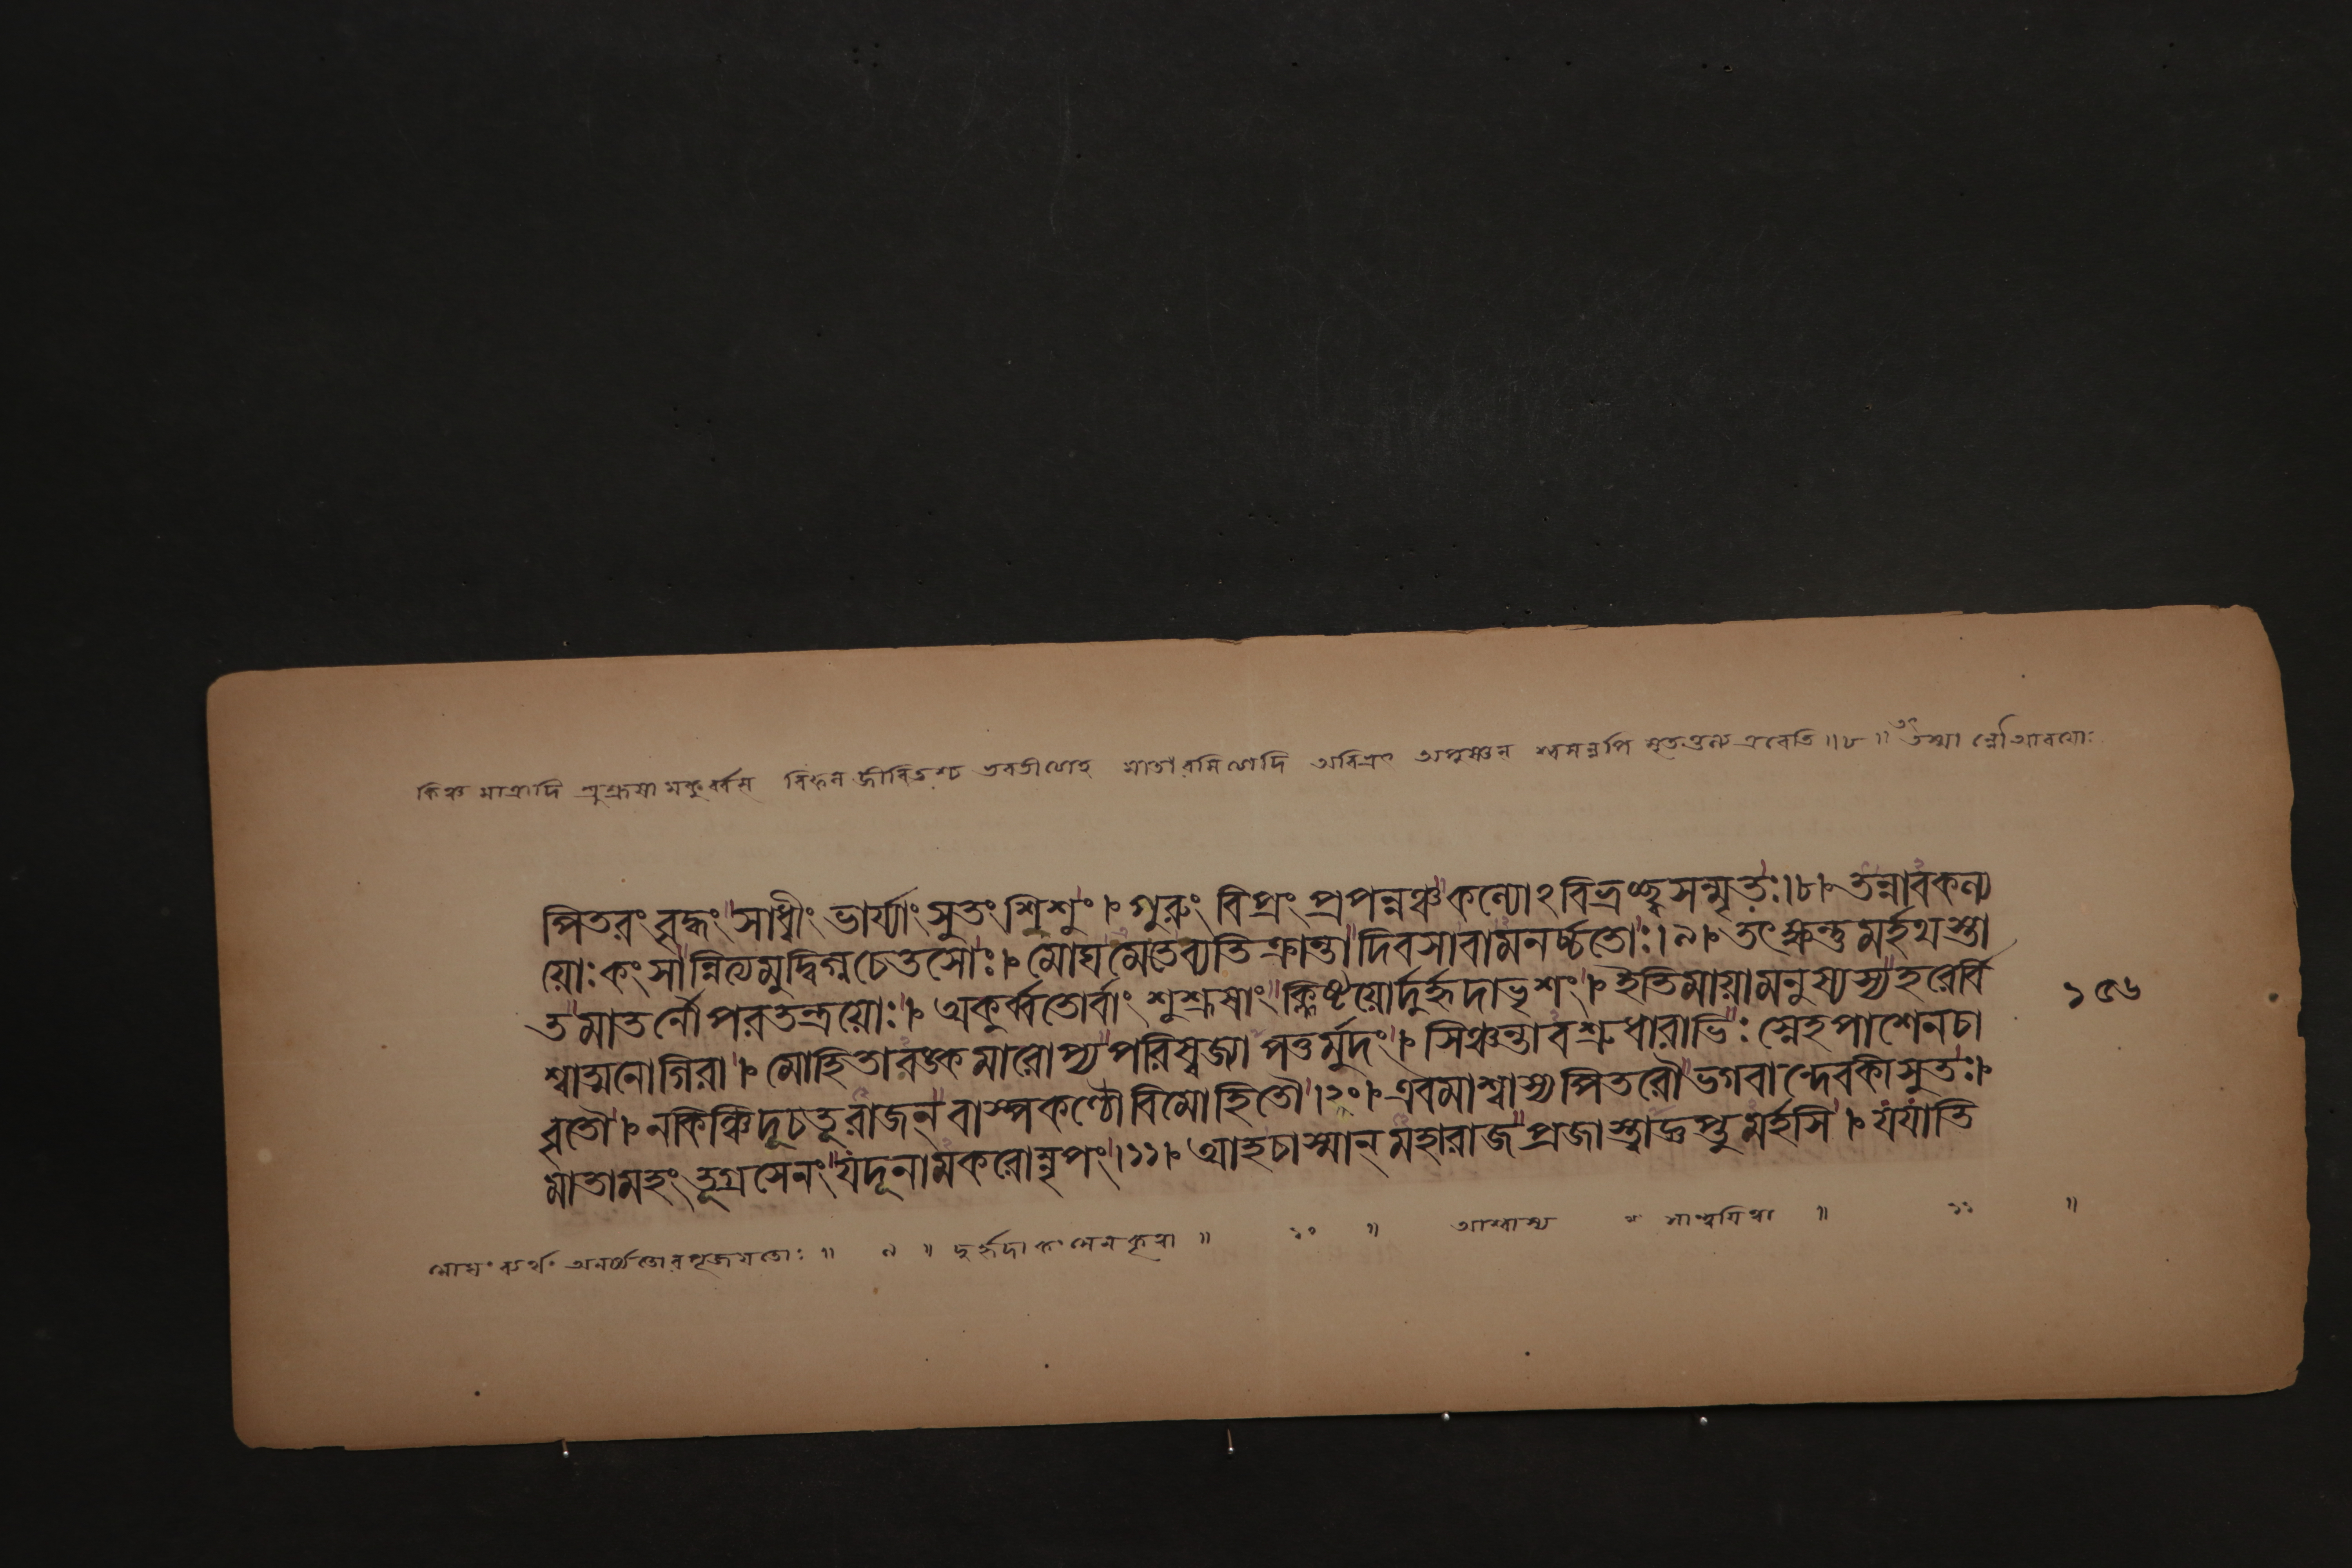 কিঞ্চ মাত্রাদি শুশ্রূষামকুর্ব্বতঃ মাতরমিত্যাদি অবিভ্রৎ অপুষ্ণন্ শ্বসন্নপি মৃততুল্য এবেতি ॥৮॥ তস্মা ন্নৌ আবয়োঃ
ম্পিতরং বৃদ্ধং সাধ্বীং ভার্য্যাং সুতং শিশুং । গুরুং বিপ্রং প্রপন্নঞ্চ কল্যোঽবিভ্রচ্ছ্বসন্মৃতঃ।৮। তন্নাবকল্প
য়োঃ কংসান্নিত্যমুদ্বিগ্নচেতসোঃ । মোঘমেতেব্যতিক্রান্তা দিবসাবামনর্চ্চতোঃ।৯। তৎক্ষন্তুমর্হথস্তা
তমাতর্নৌপরতন্ত্রয়োঃ । অকুর্ব্বতোর্বাং শুশ্রূষাং ক্লিষ্টয়োর্দুর্হৃদাভৃশং । ইতিমায়ামনুষ্যস্যহরের্বি
শ্বাত্মনোগিরা । মোহিতারঙ্কমারোপ্য পরিস্বজ্যাপতুর্মুদং । সিঞ্চন্তাবশ্রুধারাভিঃ স্নেহপাশেনচা
বৃতৌ । নকিঞ্চিদূচতূরাজন্ বাস্পকণ্ঠৌবিমোহিতৌ।১০। এবমাশ্বাস্যপিতরৌ ভগবান্দেবকীসুতঃ ।
মাতামহং তূগ্রসেনং যদূনামকরোন্নৃপং।১১। আহচাস্মান্ মহারাজ প্রজাশ্চাজ্ঞপ্তুমর্হসি । যযাতি
১৫৬
মোঘং ব্যর্থং অনর্চ্চতোরপূজয়তোঃ ॥ ৯ ॥ দুর্হৃদা কংসেন ॥ ১০ ॥ আশ্বাস্য ॥ ১১ ॥